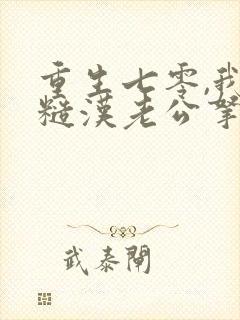 重生七零,我
糙漢老公寵
武泰閘